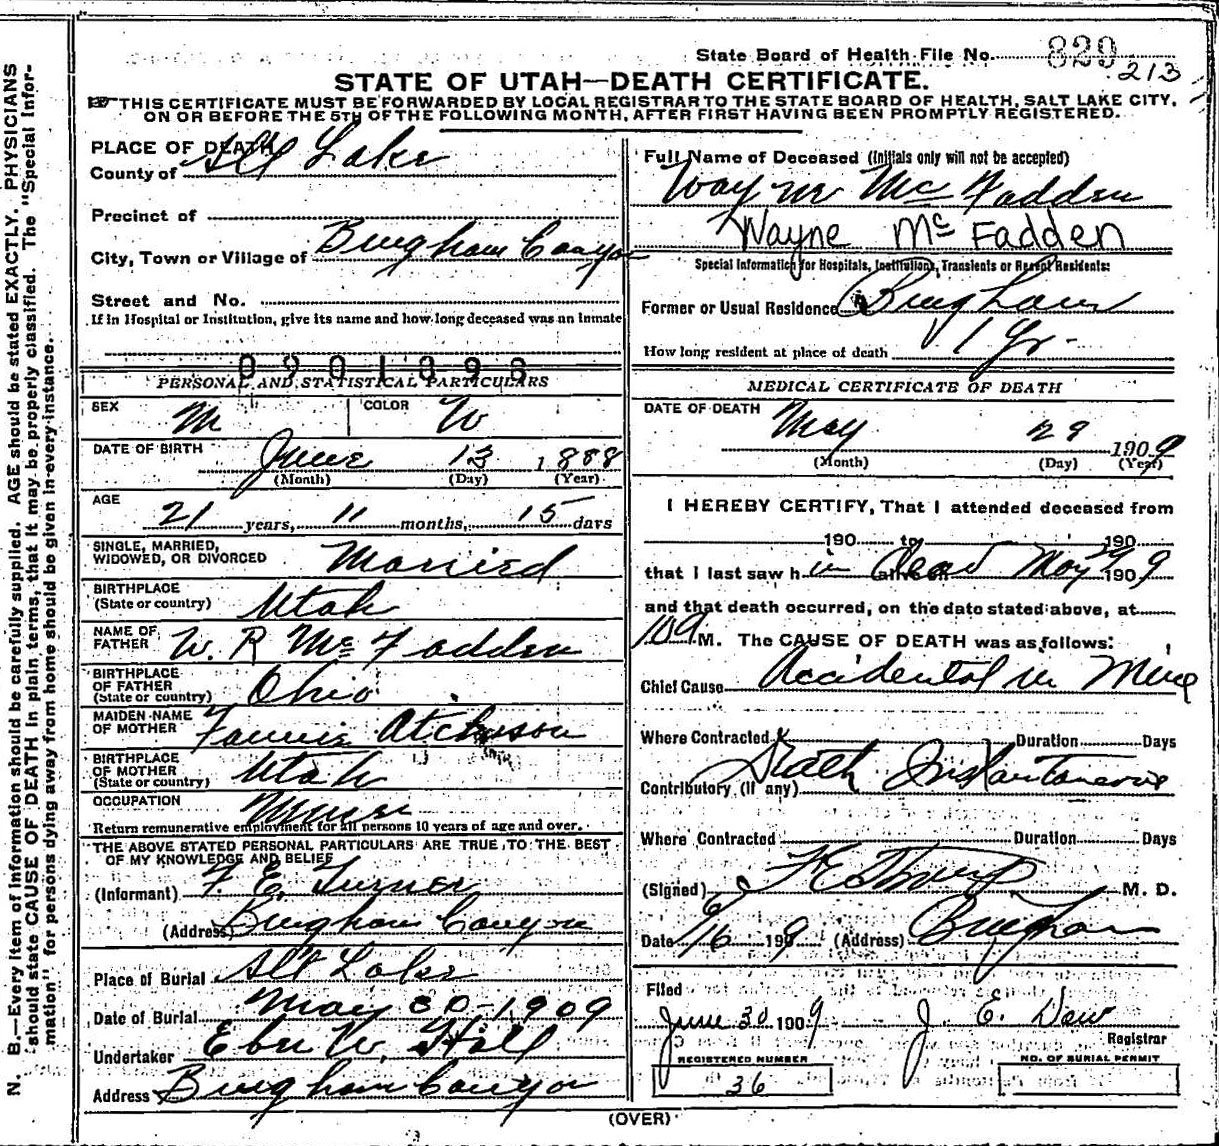 State Board of Health File No. 829
213
STATE OF UTAH—DEATH CERTIFICATE.
THIS CERTIFICATE MUST BE FORWARDED BY LOCAL REGISTRAR TO THE STATE BOARD OF HEALTH, SALT LAKE CITY,
ON OR BEFORE THE 5TH OF THE FOLLOWING MONTH, AFTER FIRST HAVING BEEN PROMPTLY REGISTERED.
N. B.—Every item of information should be carefully supplied. AGE should be stated EXACTLY. PHYSICIANS
should state CAUSE OF DEATH in plain terms, that it may be properly classified. The "Special Infor-
mation" for persons dying away from home should be given in every instance.
PLACE OF DEATH
County of Slt Lake
Precinct of
City, Town or Village of Bingham Canyon
Street and No.
If in Hospital or Institution, give its name and how long deceased was an inmate
0901898
PERSONAL AND STATISTICAL PARTICULARS
SEX M COLOR W
DATE OF BIRTH June 13 1888
(Month) (Day) (Year)
AGE 21 years, 11 months, 15 days
SINGLE, MARRIED,
WIDOWED, OR DIVORCED Married
BIRTHPLACE
(State or country) Utah
NAME OF
FATHER W. R Mc Fadden
BIRTHPLACE
OF FATHER
(State or country) Ohio
MAIDEN NAME
OF MOTHER Fannie Atchison
BIRTHPLACE
OF MOTHER
(State or country) Utah
OCCUPATION Miner
Return remunerative employment for all persons 10 years of age and over.
THE ABOVE STATED PERSONAL PARTICULARS ARE TRUE TO THE BEST
OF MY KNOWLEDGE AND BELIEF
(Informant) F. E. Turner
(Address) Bingham Canyon
Place of Burial Slt Lake
Date of Burial May 30-1909
Undertaker Eber W. Hall
Address Bingham Canyon
Full Name of Deceased (Initials only will not be accepted)
Wayne Mc Fadden
Wayne Mc Fadden
Special Information for Hospitals, Institutions, Transients or Recent Residents:
Former or Usual Residence Bingham
How long resident at place of death 1 Yr.
MEDICAL CERTIFICATE OF DEATH
DATE OF DEATH May 29 1909
(Month) (Day) (Year)
I HEREBY CERTIFY, That I attended deceased from
190 to 190
that I last saw h im alive on dead May 29 1909
and that death occurred, on the date stated above, at
M. The CAUSE OF DEATH was as follows:
Chief Cause Accidental in Mine
Where Contracted Duration Days
Contributory (if any) Death Instantaneous
Where Contracted Duration Days
(Signed) M. D.
Date 6/16 1909 (Address) Bingham
Filed
June 30 1909 J. E. Dew
Registrar
REGISTERED NUMBER
36
NO. OF BURIAL PERMIT
(OVER)